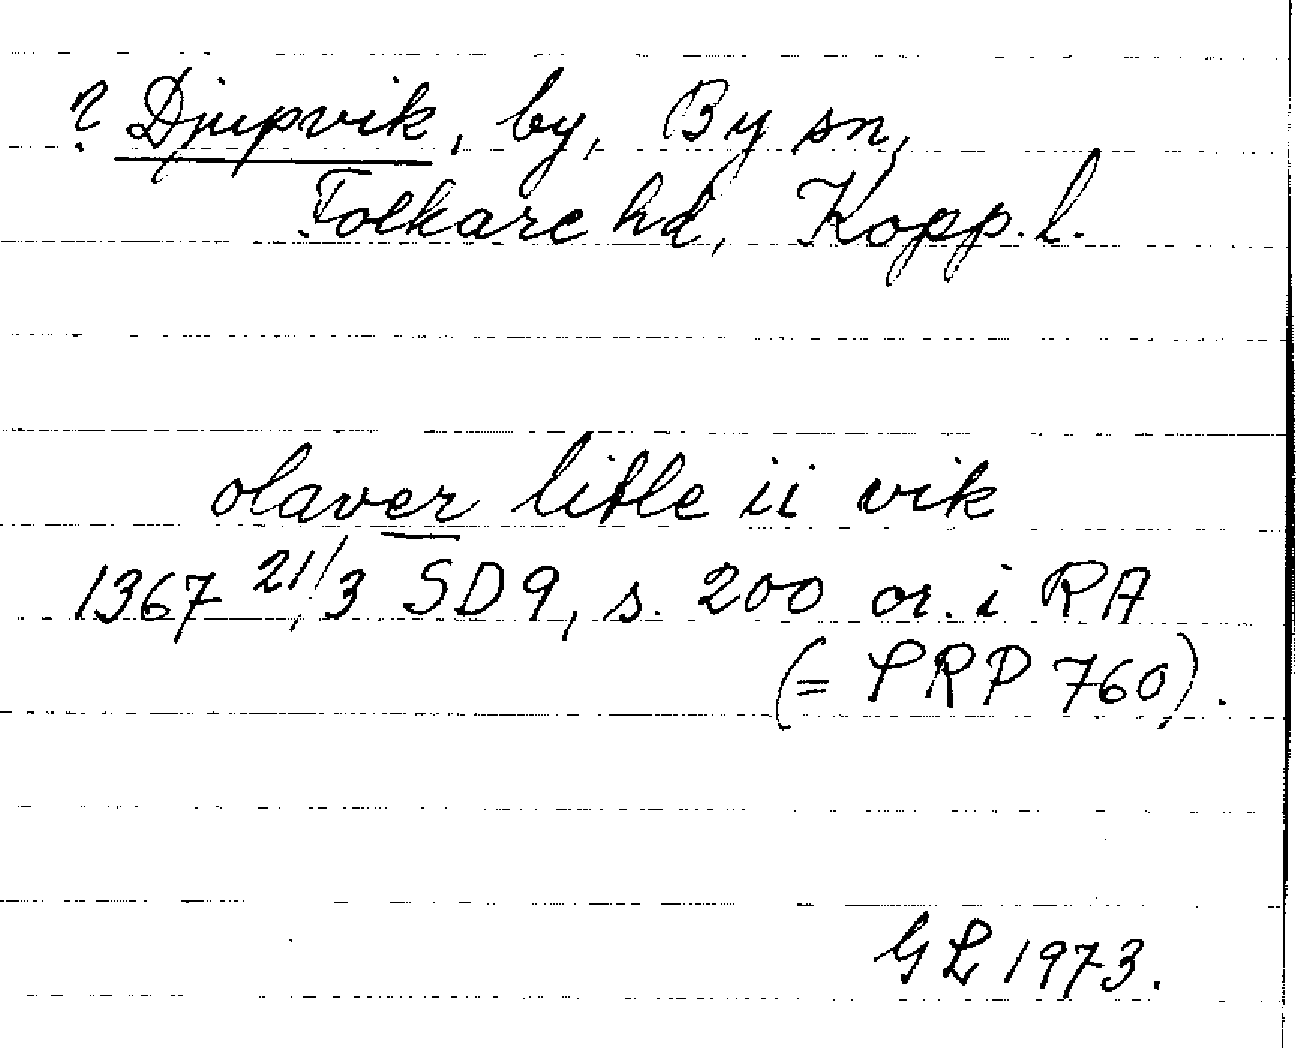 ? Djupvik, by, By sn,
Folkare hd, Kopp. l.
olaver litle ii vik
1367 21/3 SD 9, s. 200 or. i RA
(= PRP 760).
GL 1973.